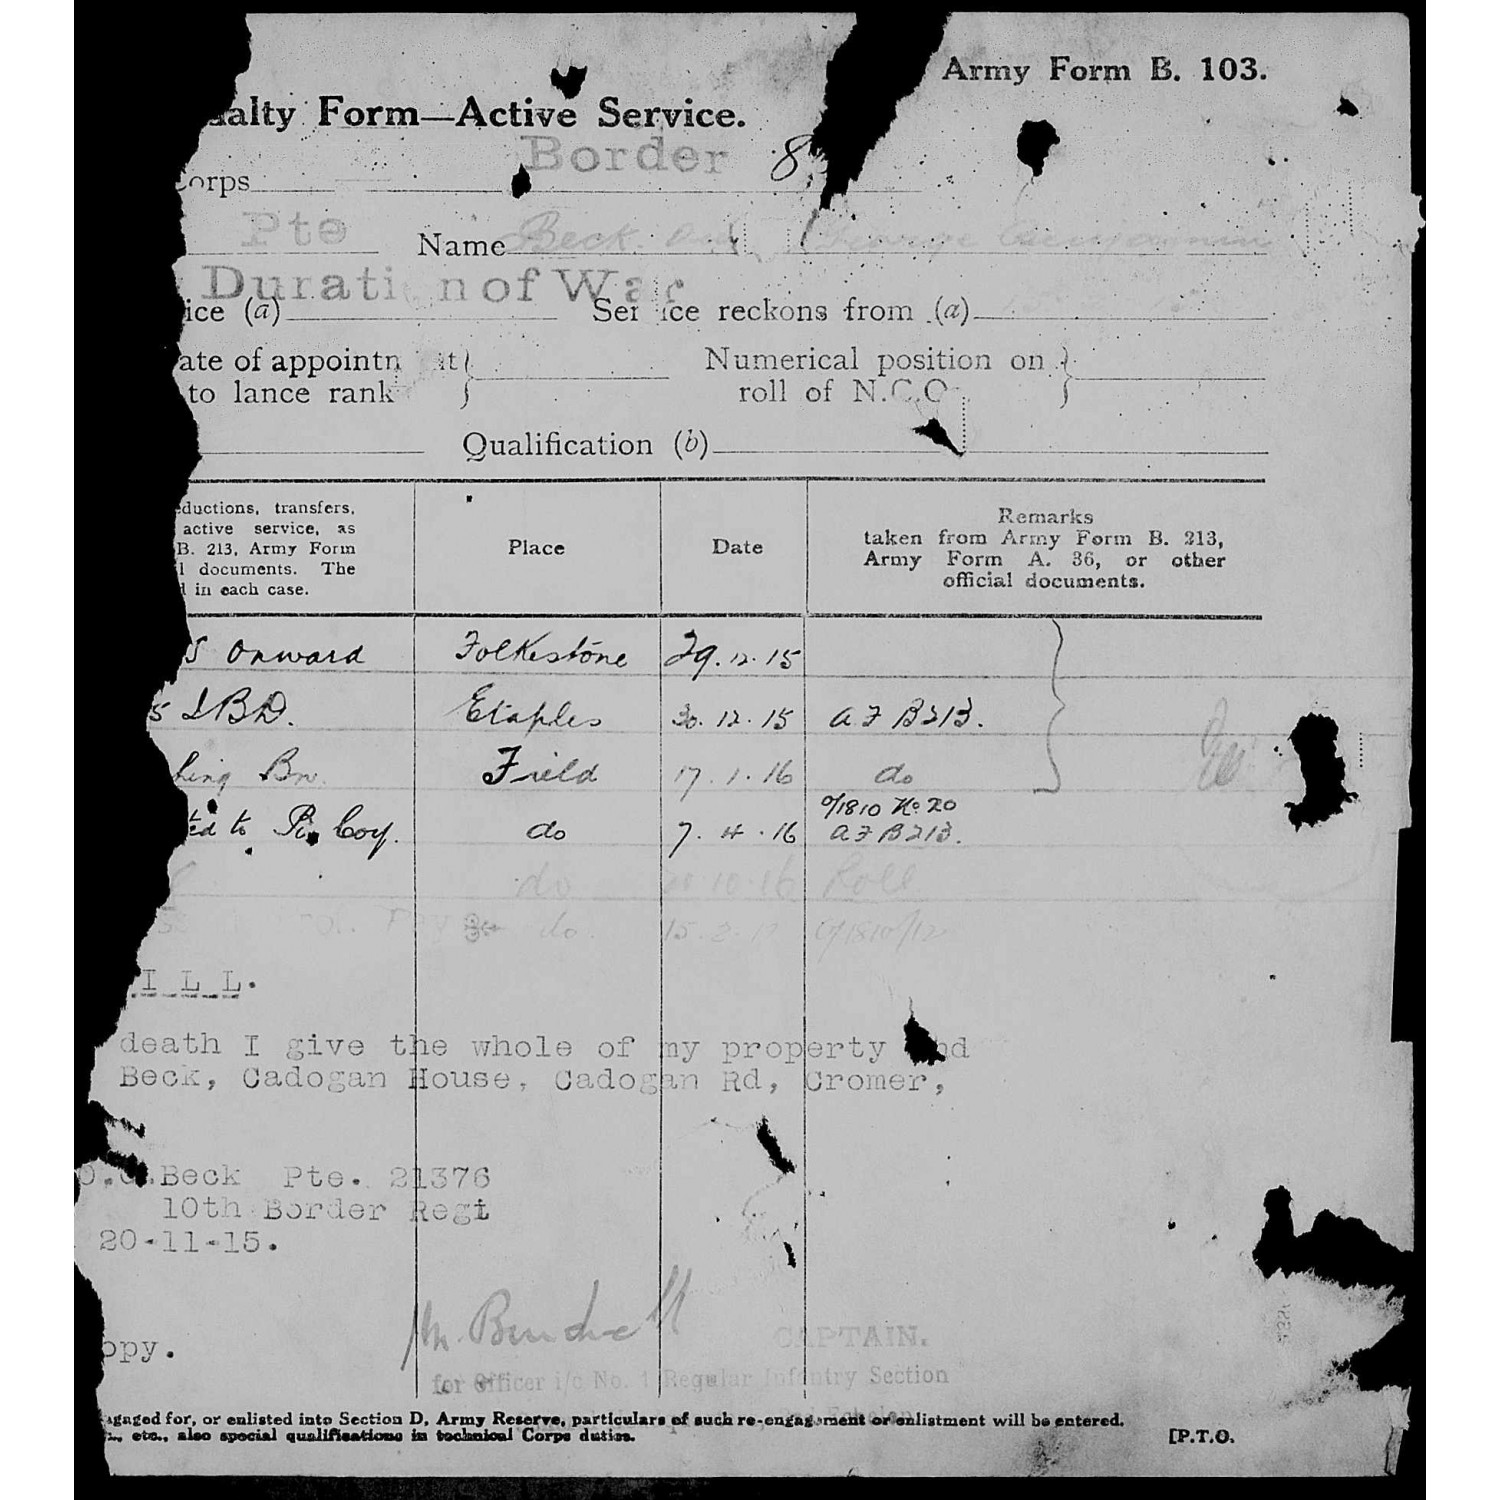 Army Form B. 103.
alty Form—Active Service.
Corps Border 8
Pte Name Beck. George Benjamin
Duration of War
ice (a) Service reckons from (a)
ate of appointm nt } Numerical position on }
to lance rank } roll of N.C.O }
Qualification (b)
eductions, transfers,
active service, as
B. 213, Army Form
l documents. The
d in each case.
Place
Date
Remarks
taken from Army Form B. 213,
Army Form A. 36, or other
official documents.
S Onward Folkestone 29.12.15
5 IBD. Etaples 30.12.15 A F B213.
hing Bn. Field 17.1.16 do
O/1810 No. 20
ted to Coy. do 7.4.16 A F B213.
do 10.16 Roll
do. 15.2.17 O/1810/12
ILL.
death I give the whole of my property and
Beck, Cadogan House, Cadogan Rd, Cromer,
Beck Pte. 21376
10th Border Regt
20-11-15.
opy.
CAPTAIN.
for Officer i/c No. 1 Regular Infantry Section
Echelon
ngaged for, or enlisted into Section D, Army Reserve, particulars of such re-engagement or enlistment will be entered.
., etc., also special qualifications in technical Corps duties.
[P.T.O.